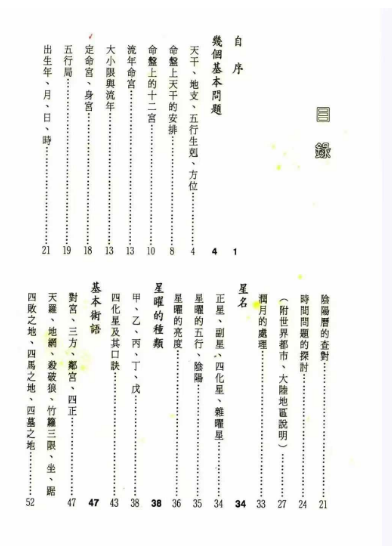 目錄
自序……1
幾個基本問題……4
天干、地支、五行生剋、方位……4
命盤上天干的安排……8
命盤上的十二宮……10
流年命宮……13
大小限與流年……13
定命宮、身宮……18
五行局……19
出生年、月、日、時……21
陰陽曆的查對……21
時間問題的探討……24
(附世界都市、大陸地區說明)……27
潤月的處理……33
星名……34
正星、副星、四化星、雜曜星……34
星曜的五行、陰陽……35
星曜的亮度……36
星曜的種類……38
甲、乙、丙、丁、戊……38
四化星及其口訣……43
基本術語……47
對宮、三方、鄰宮、四正……47
天羅、地網、殺破狼、竹籮三限、坐、踞
四敗之地、四馬之地、四墓之地……52